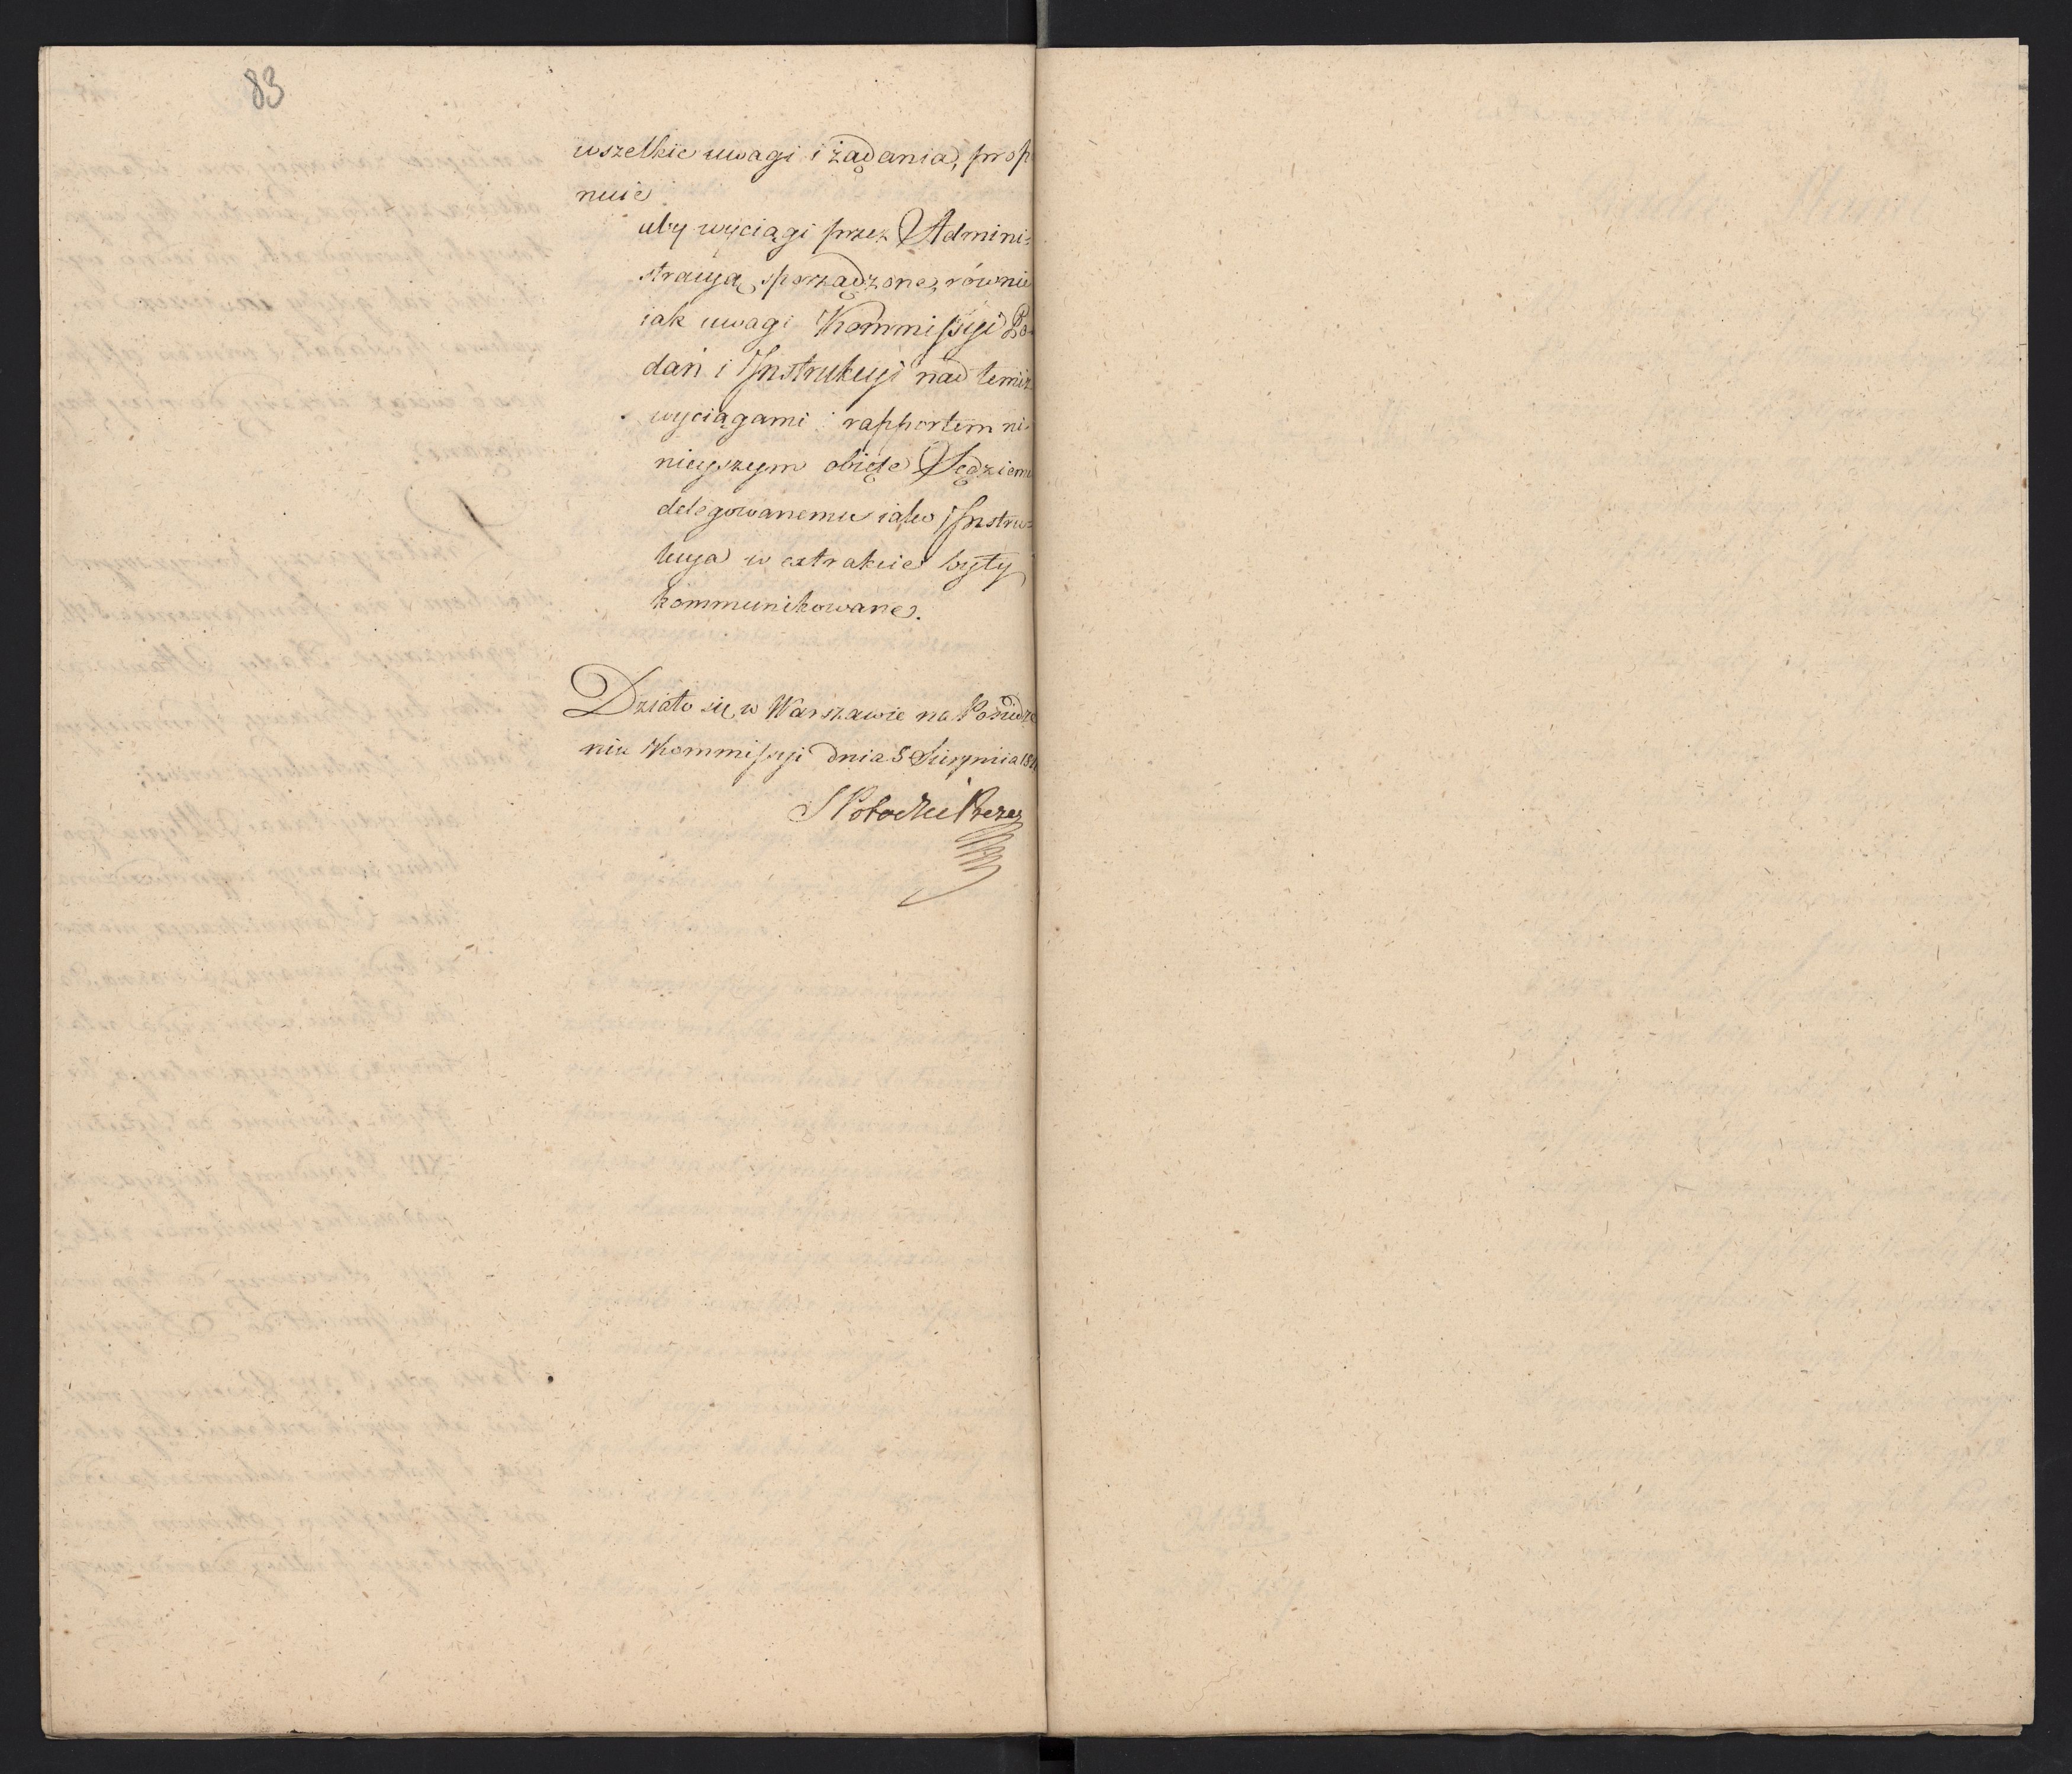 83
wszelkie uwagi i żądania, prop
nuie
aby wyciągi przez Admini=
stracyą sporządzone, równie
iak uwagi Kommissyi Po
dań i Instrukcyi nad temiż
wyciągami rapportem ni=
nieyszym obięte Sędziemu
delegowanemu iako Instru=
kcya w extrakcie były
kommunikowane.
Działo się w Warszawie na Posiedze
niu Kommissyi dnia 8 Sierpnia 18
S Potocki Prezes